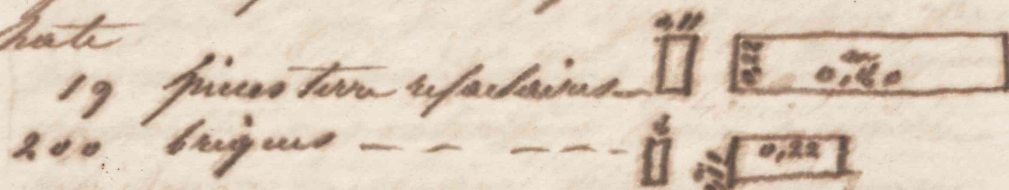 19 pieces terre refractaires 0,11 0,22 0,60
200 briques 0,11 0,22